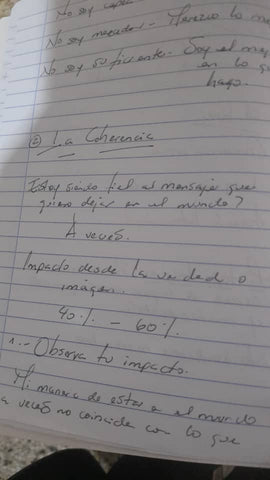 No soy capaz
No soy merecedor - Merezco lo me
No soy suficiente - Soy el mejor
en lo que
hago.
② La Coherencia
Estoy siendo fiel al mensaje que
quiero dejar en el mundo?
A veces.
Impacto desde la verdad o
imágen.
40% - 60%
1.- Observa tu impacto.
Mi manera de estar en el mundo
a veces no coincide con lo que